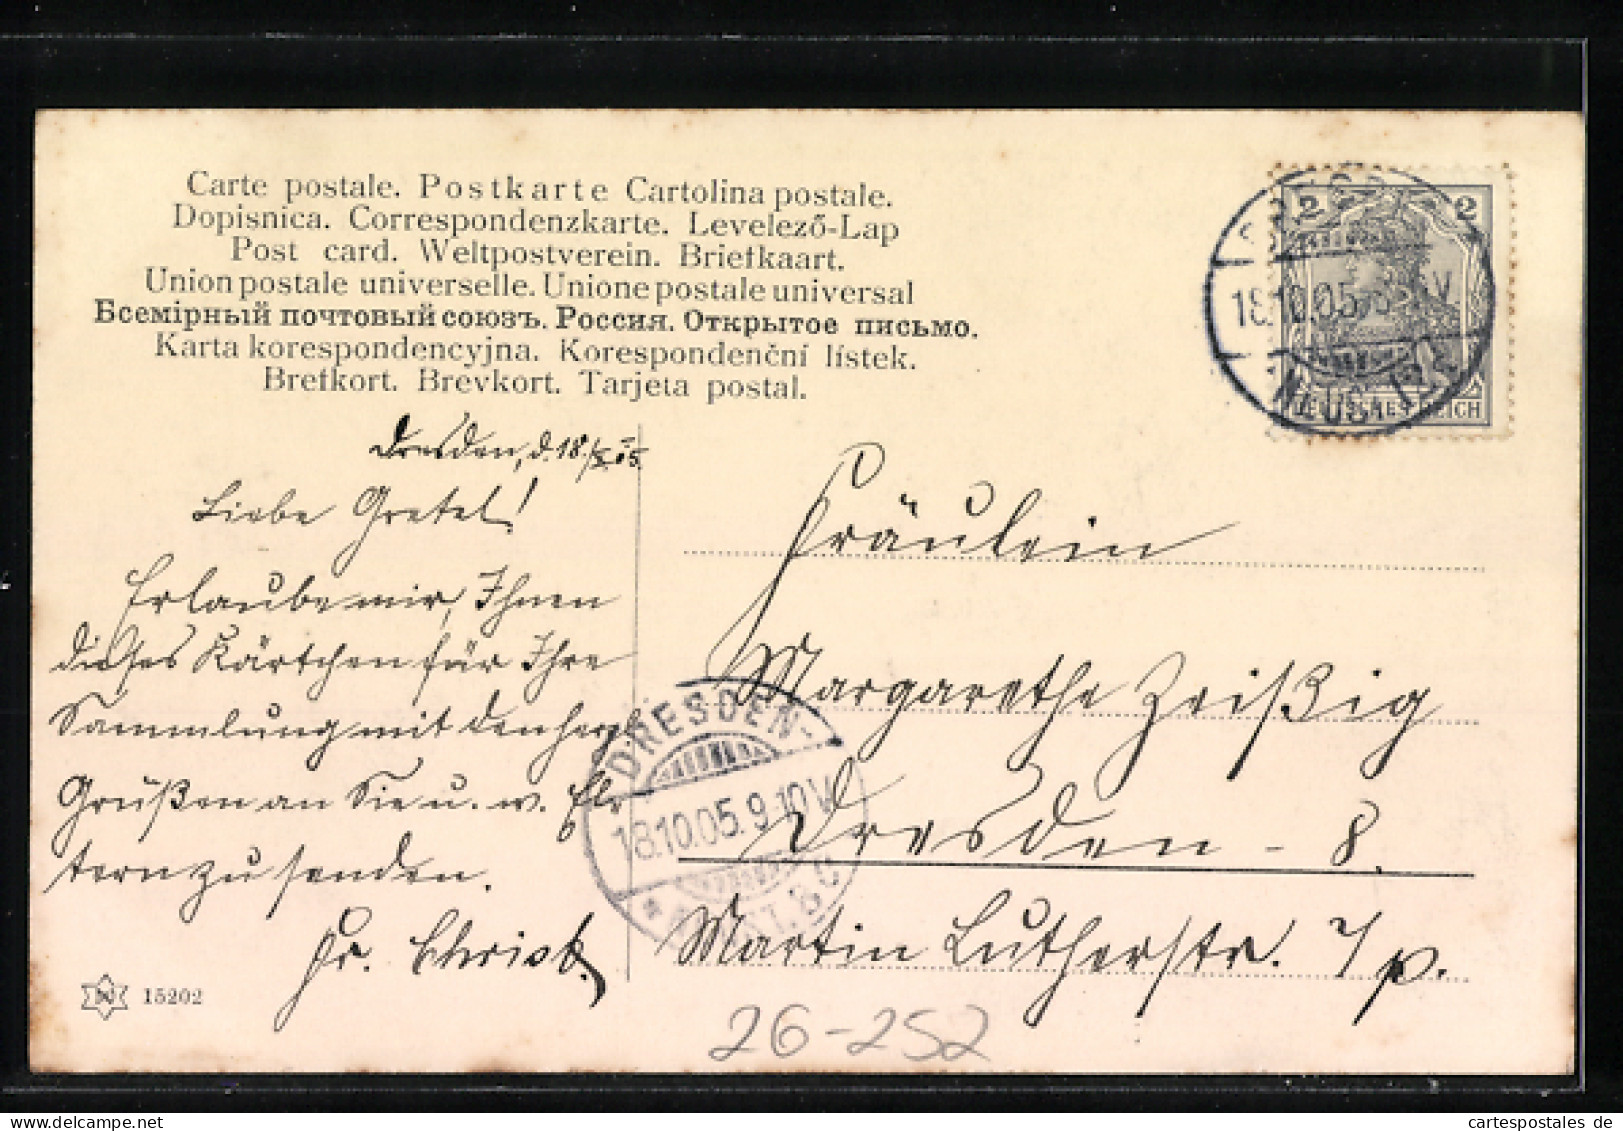 Carte postale. Postkarte Cartolina postale.
Dopisnica. Correspondenzkarte. Levelező-Lap
Post card. Weltpostverein. Briefkaart.
Union postale universelle. Unione postale universal
Всемірный почтовый союзъ. Россия. Открытое письмо.
Karta korespondencyjna. Korespondenční lístek.
Brefkort. Brevkort. Tarjeta postal.
2 2
DEUTSCHES REICH
18.10.05
Dresden, d. 18./X. 05.
Liebe Gretel!
Erlaube mir, Ihnen
dieses Kärtchen für Ihre
Sammlung mit den herzl
Grüßen an Sie u. w. El-
tern zu senden.
Fr. Christ.
Fräulein
Margarethe Zeißig
Dresden - 8.
Martin Lutherstr. 7/p.
DRESDEN-
18.10.05. 9-10V.
15202
26-252
cartespostales de